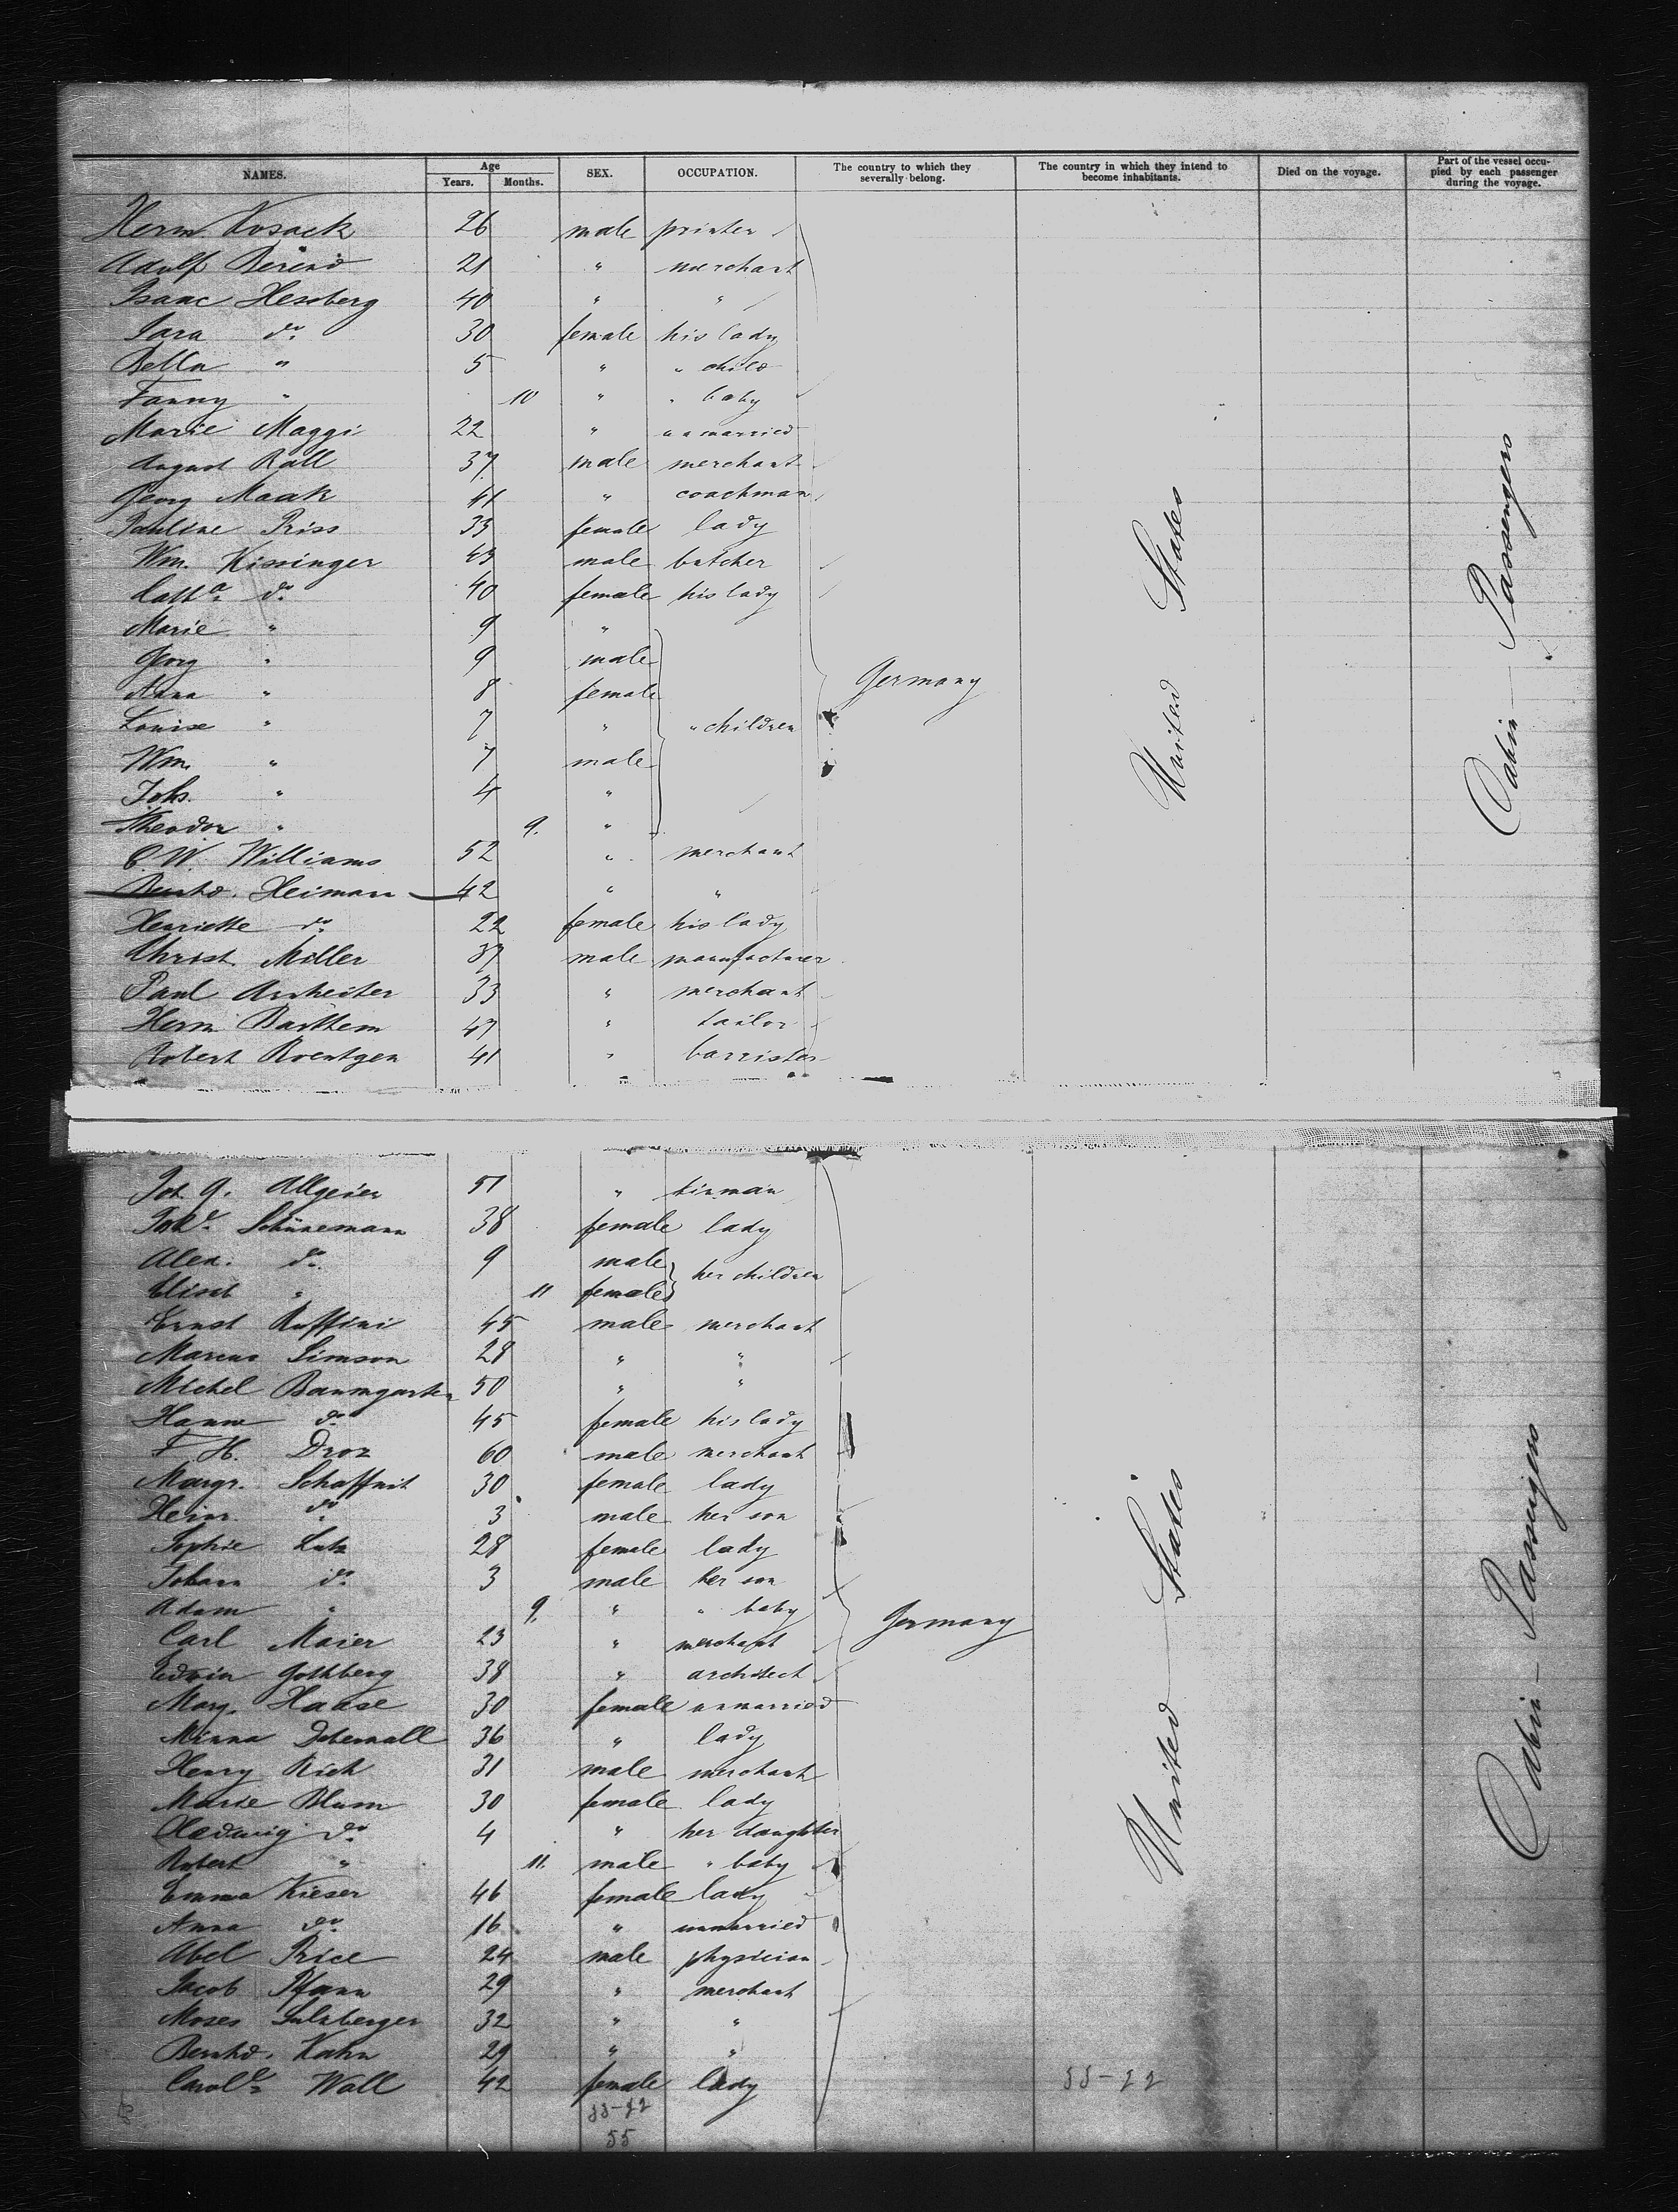 NAMES. Age Years. Months. SEX. OCCUPATION. The country to which they severally belong. The country in which they intend to become inhabitants. Died on the voyage. Part of the vessel occupied by each passenger during the voyage.
Herm. Kosack 26 male printer
Adolf Berend 21 " merchant
Isaac Hessberg 40 " "
Sara do. 30 female his lady
Bella " 5 " " child
Fanny " 10 " " baby
Marie Maggi 22 " unmarried
August Rall 37 male merchant
Georg Maak 41 " coachman
Pauline Priss 33 female lady
Wm. Kissinger 43 male butcher
Catha. do. 40 female his lady
Marie " 9 "
Georg " 9 male
Anna " 8 female
Louise " 7 " " children
Wm. " 7 male
Johs. " 4 "
Theodor " 9. "
C. W. Williams 52 " merchant
Bernhd. Heimann 42 " "
Henriette do. 22 female his lady
Christ. Miller 37 male manufacturer
Paul Arnheiter 33 " merchant
Herm Barthem 47 " tailor
Robert Roentgen 41 " barrister
Germany
United States
Cabin Passengers
Joh. G. Allgeier 51 " tinman
Johe. Schünemann 38 female lady
Alex. do. 9 male her children
Elisab " 11 female
Ernst Ruffini 45 male merchant
Marcus Simson 28 " "
Michel Baumgarten 50 " "
Hanne do. 45 female his lady
F. H. Droz 60 male merchant
Margr. Schaffnit 30 female lady
Heinr. do. 3 male her son
Sophie Lutz 28 female lady
Johann do. 3 male her son
Adam " 9. " " baby
Carl Maier 23 " merchant
Edwin Gothberg 38 " architect
Marg. Haase 30 female unmarried
Minna 36 " lady
Henry Rich 31 male merchant
Marie Blum 30 female lady
Hedwig do. 4 " her daughter
Robert " 11. male " baby
Emma Kieser 46 female lady
Anna do. 16 " unmarried
Abel Price 24 male physician
Jacob Pfann 29 " merchant
Moses Sulzberger 32 " "
Bernhd. Kahn 29 " "
Carole. Wall 42 female lady
Germany
United States
Cabin Passengers
33-22
55
33-22